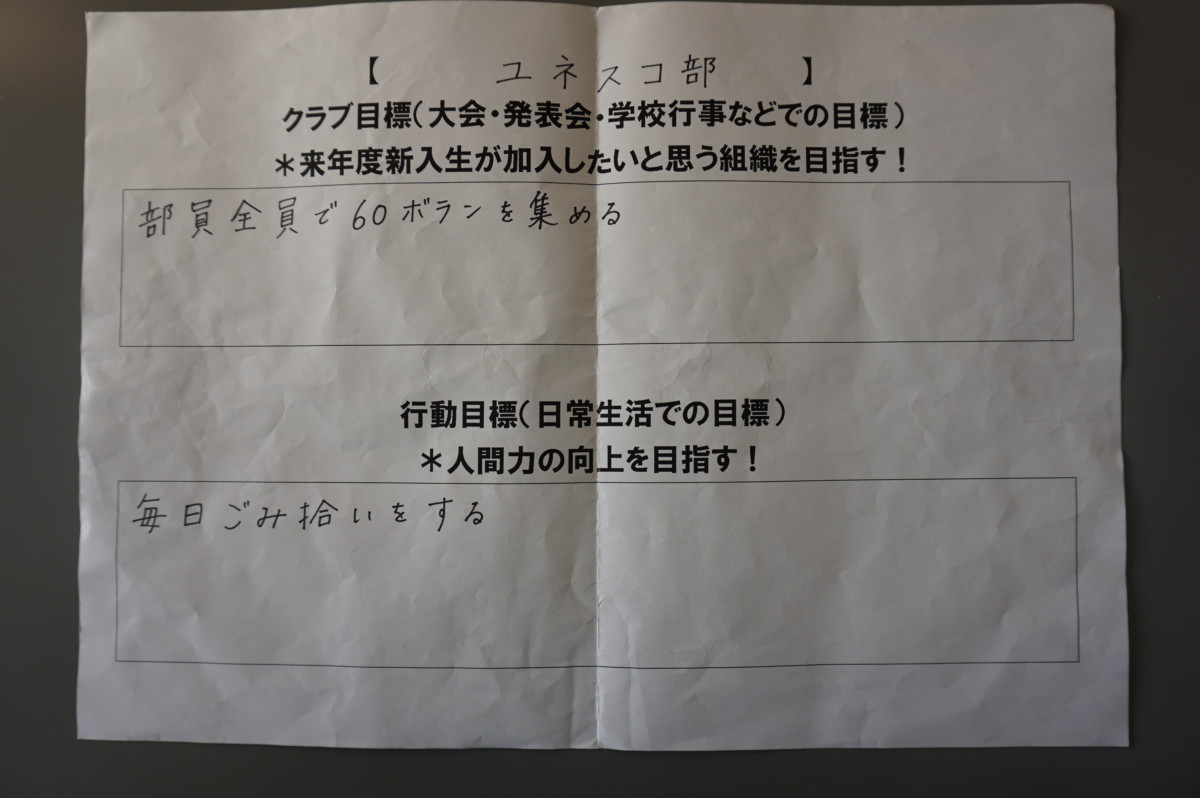 【 ユネスコ部 】
クラブ目標(大会・発表会・学校行事などでの目標)
＊来年度新入生が加入したいと思う組織を目指す！
部員全員で60ボランを集める
行動目標(日常生活での目標)
＊人間力の向上を目指す！
毎日ごみ拾いをする